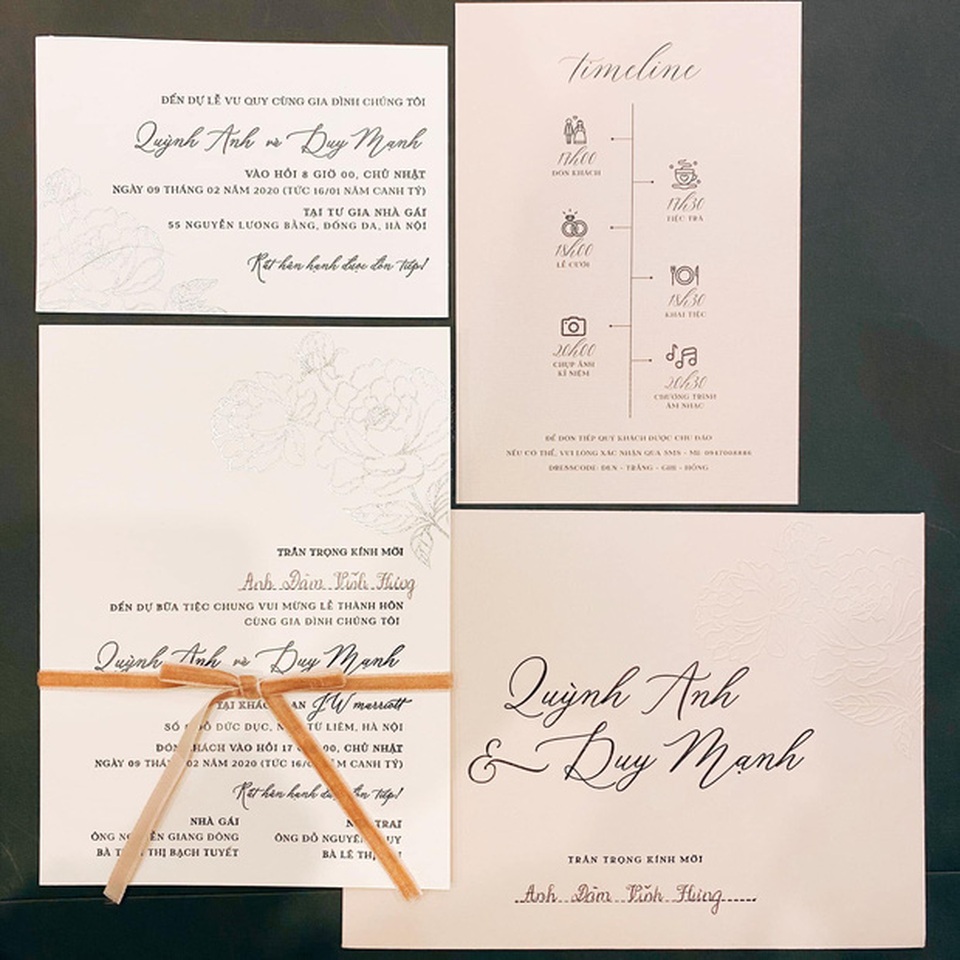 ĐẾN DỰ LỄ VU QUY CÙNG GIA ĐÌNH CHÚNG TÔI
Quỳnh Anh và Duy Mạnh
VÀO HỒI 8 GIỜ 00, CHỦ NHẬT
NGÀY 09 THÁNG 02 NĂM 2020 (TỨC 16/01 NĂM CANH TÝ)
TẠI TƯ GIA NHÀ GÁI
55 NGUYỄN LƯƠNG BẰNG, ĐỐNG ĐA, HÀ NỘI
Rất hân hạnh được đón tiếp!
timeline
17h00
ĐÓN KHÁCH
17h30
TIỆC TRÀ
18h00
LỄ CƯỚI
18h30
KHAI TIỆC
20h00
CHỤP ẢNH
KỈ NIỆM
20h30
CHƯƠNG TRÌNH
ÂM NHẠC
ĐỂ ĐÓN TIẾP QUÝ KHÁCH ĐƯỢC CHU ĐÁO
NẾU CÓ THỂ, VUI LÒNG XÁC NHẬN QUA SMS - MI: 0947008886
DRESSCODE: ĐEN - TRẮNG - GHI - HỒNG
TRÂN TRỌNG KÍNH MỜI
Anh Đàm Vĩnh Hưng
ĐẾN DỰ BỮA TIỆC CHUNG VUI MỪNG LỄ THÀNH HÔN
CÙNG GIA ĐÌNH CHÚNG TÔI
Quỳnh Anh và Duy Mạnh
TẠI JW marriott
SỐ ĐỖ ĐỨC DỤC, TỪ LIÊM, HÀ NỘI
ĐÓN KHÁCH VÀO HỒI 17 00, CHỦ NHẬT
NGÀY 09 THÁNG 02 NĂM 2020 (TỨC 16/ NĂM CANH TÝ)
Rất hân hạnh được đón tiếp!
NHÀ GÁI
ÔNG NGUYỄN GIANG ĐÔNG
BÀ THỊ BẠCH TUYẾT
NHÀ TRAI
ÔNG ĐỖ NGUYÊN
BÀ LÊ
Quỳnh Anh
& Duy Mạnh
TRÂN TRỌNG KÍNH MỜI
Anh Đàm Vĩnh Hưng